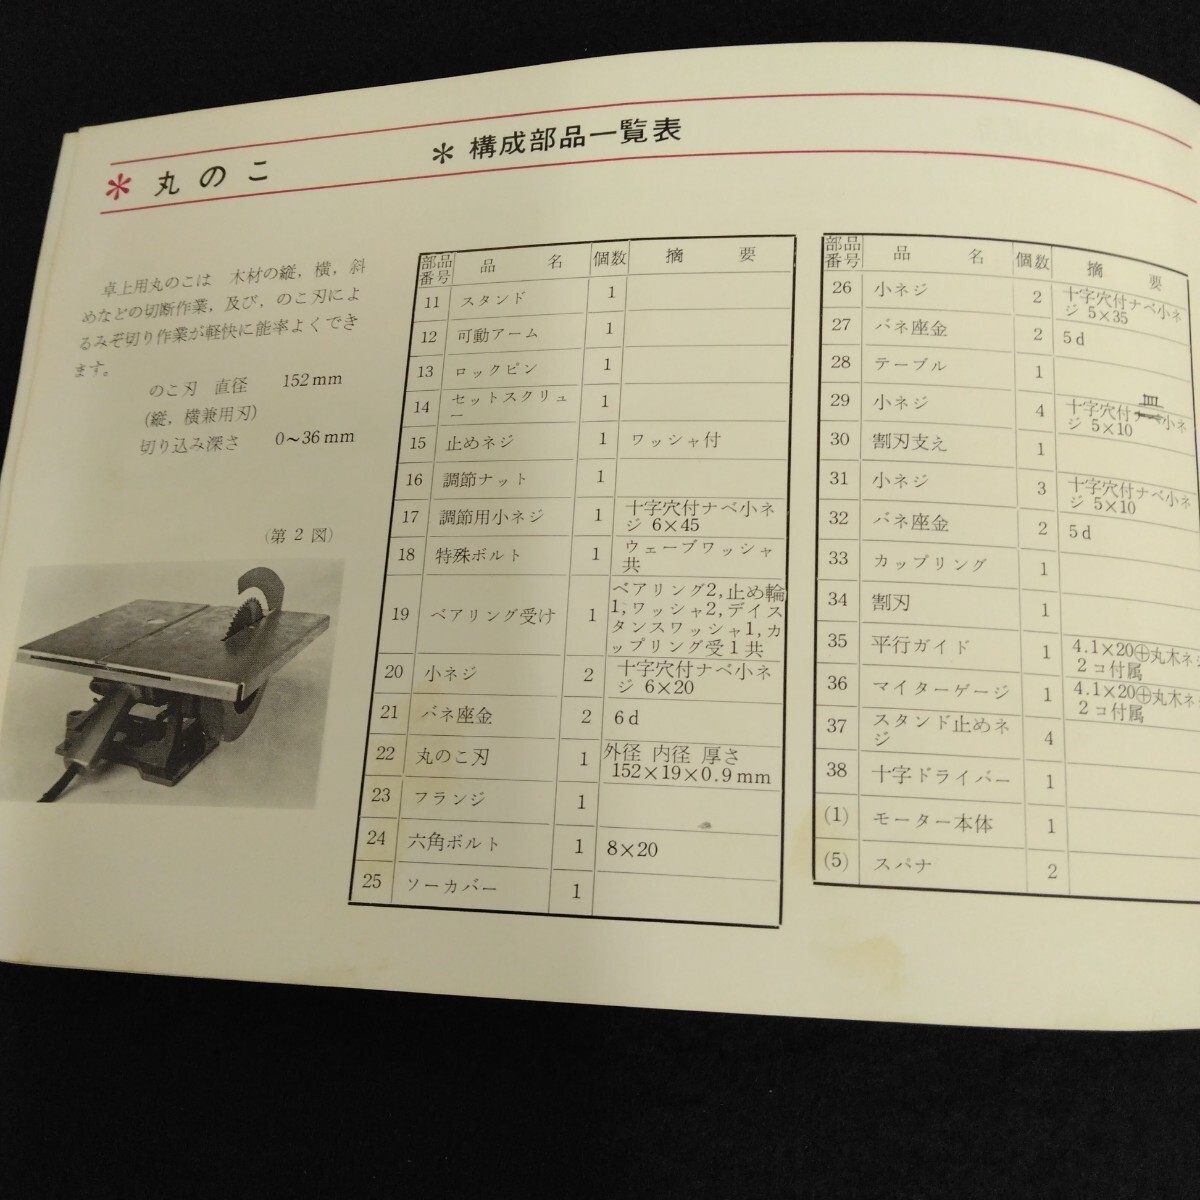 ＊ 丸のこ
＊ 構成部品一覧表
卓上用丸のこは 木材の縦，横，斜
めなどの切断作業，及び，のこ刃によ
るみぞ切り作業が軽快に能率よくでき
ます。
のこ刃 直径 152mm
(縦，横兼用刃)
切り込み深さ 0〜36mm
(第2図)
部品番号 品名 個数 摘要
11 スタンド 1
12 可動アーム 1
13 ロックピン 1
14 セットスクリュー 1
15 止めネジ 1 ワッシャ付
16 調節ナット 1
17 調節用小ネジ 1 十字穴付ナベ小ネジ 6×45
18 特殊ボルト 1 ウェーブワッシャ共
19 ベアリング受け 1 ベアリング2，止め輪
1，ワッシャ2，デイス
タンスワッシャ1，カ
ップリング受1共
20 小ネジ 2 十字穴付ナベ小ネジ 6×20
21 バネ座金 2 6d
22 丸のこ刃 1 外径 内径 厚さ
152×19×0.9mm
23 フランジ 1
24 六角ボルト 1 8×20
25 ソーカバー 1
部品番号 品名 個数 摘要
26 小ネジ 2 十字穴付ナベ小ネジ 5×35
27 バネ座金 2 5d
28 テーブル 1
29 小ネジ 4 十字穴付皿小ネジ 5×10
30 割刃支え 1
31 小ネジ 3 十字穴付ナベ小ネジ 5×10
32 バネ座金 2 5d
33 カップリング 1
34 割刃 1
35 平行ガイド 1 4.1×20⊕丸木ネジ
2コ付属
36 マイターゲージ 1 4.1×20⊕丸木ネ
2コ付属
37 スタンド止めネジ 4
38 十字ドライバー 1
(1) モーター本体 1
(5) スパナ 2